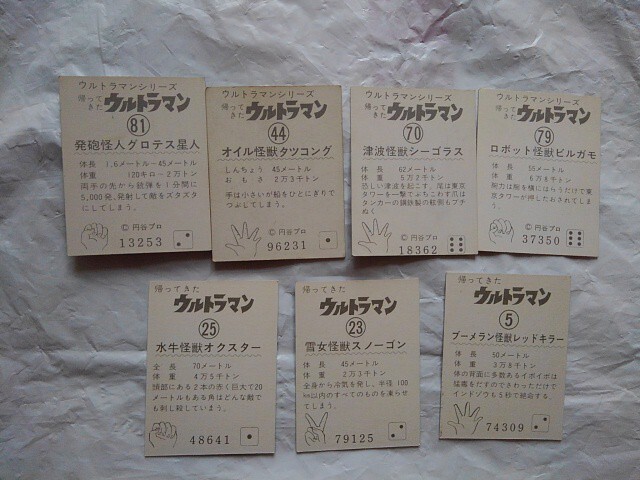 ウルトラマンシリーズ
帰ってきた ウルトラマン
81
発砲怪人グロテス星人
体長 1.6メートル〜45メートル
体重 120キロ〜2万トン
両手の先から銃弾を1分間に
5,000発、発射して敵をズタズ
タにしてしまう。
©円谷プロ
13253
ウルトラマンシリーズ
帰ってきた ウルトラマン
44
オイル怪獣タツコング
しんちょう 45メートル
おもさ 2万3千トン
手は小さいが船をひとにぎりで
つぶしてしまう。
©円谷プロ
96231
ウルトラマンシリーズ
帰ってきた ウルトラマン
70
津波怪獣シーゴラス
体長 62メートル
体重 5万2千トン
恐しい津波を起こす。尾は東京
タワーを一撃でぶちこわす爪は
タンカーの鋼鉄製の船側もブチ
ぬく
©円谷プロ
18362
ウルトラマンシリーズ
帰ってきた ウルトラマン
79
ロボット怪獣ビルガモ
体長 55メートル
体重 6万8千トン
腕力は腕を横にはらうだけで東
京タワーが押したおされてしまう。
©円谷プロ
37350
帰ってきた
ウルトラマン
25
水牛怪獣オクスター
全長 70メートル
体重 4万5千トン
頭部にある2本の赤く巨大で20
メートルもある角はどんな敵で
も刺し殺していまう。
48641
帰ってきた
ウルトラマン
23
雪女怪獣スノーゴン
体長 45メートル
体重 2万3千トン
全身から冷気を発し、半径100
km以内のすべてのものを凍らせ
てしまう。
79125
帰ってきた
ウルトラマン
5
ブーメラン怪獣レッドキラー
体長 50メートル
体重 3万8千トン
体の背面に多数あるイボイボは
猛毒をだすのでさわっただけで
インドゾウも5秒で絶命する。
74309